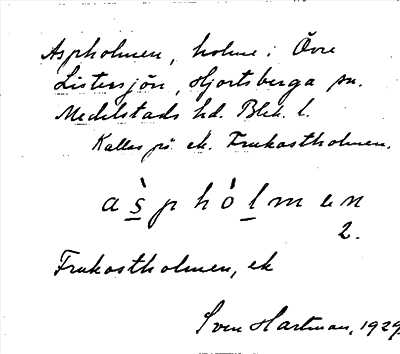 Aspholmen, holme i Övre
Listersjön, Hjortsberga sn.
Medelstads hd. Blek. l.
Kallas på ek. Frukostholmen.
àsphòlmen
2.
Frukostholmen, ek
Sven Hartman, 1929